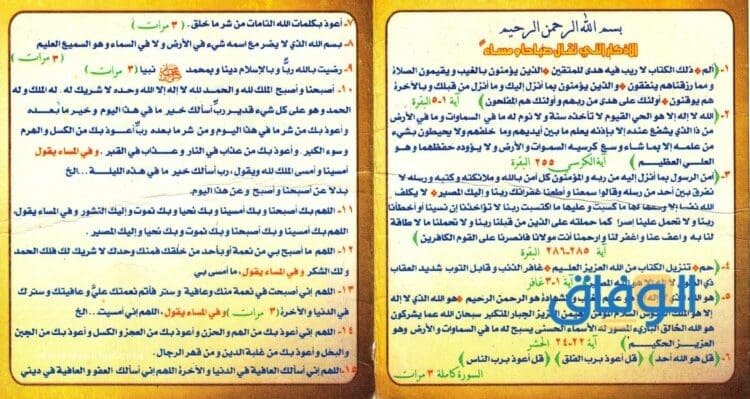 بسم الله الرحمن الرحيم
الاذكار التي تقال صباحاً ومساءً
١- (ألم • ذلك الكتاب لا ريب فيه هدى للمتقين • الذين يؤمنون بالغيب ويقيمون الصلاة
ومما رزقناهم ينفقون • والذين يؤمنون بما أنزل إليك وما أنزل من قبلك وبالآخرة
هم يوقنون • أولئك على هدى من ربهم وأولئك هم المفلحون) آية ١-٥ البقرة
٢- (الله لا إله إلا هو الحي القيوم لا تأخذه سنة ولا نوم له ما في السماوات وما في الأرض
من ذا الذي يشفع عنده إلا بإذنه يعلم ما بين أيديهم وما خلفهم ولا يحيطون بشيء
من علمه إلا بما شاء وسع كرسيه السماوات والأرض ولا يؤوده حفظهما وهو
العلي العظيم) آية الكرسي ٢٥٥ البقرة
٣- (آمن الرسول بما أنزل إليه من ربه والمؤمنون كل آمن بالله وملائكته وكتبه ورسله لا
نفرق بين أحد من رسله وقالوا سمعنا وأطعنا غفرانك ربنا وإليك المصير • لا يكلف
الله نفسا إلا وسعها لها ما كسبت وعليها ما اكتسبت ربنا لا تؤاخذنا إن نسينا أو أخطأنا
ربنا ولا تحمل علينا إصرا كما حملته على الذين من قبلنا ربنا ولا تحملنا ما لا طاقة
لنا به واعف عنا واغفر لنا وارحمنا أنت مولانا فانصرنا على القوم الكافرين)
آية ٢٨٥-٢٨٦ البقرة
٤- (حم • تنزيل الكتاب من الله العزيز العليم • غافر الذنب وقابل التوب شديد العقاب
ذي الطول لا إله إلا هو إليه المصير) آية ١-٣ غافر
٥- (هو الله الذي لا إله إلا هو عالم الغيب والشهادة هو الرحمن الرحيم • هو الله الذي لا إله
إلا هو الملك القدوس السلام المؤمن المهيمن العزيز الجبار المتكبر سبحان الله عما يشركون
هو الله الخالق البارئ المصور له الأسماء الحسنى يسبح له ما في السماوات والأرض وهو
العزيز الحكيم) آية ٢٢-٢٤ الحشر
٦- (قل هو الله أحد) (قل أعوذ برب الفلق) (قل أعوذ برب الناس)
السورة كاملة ٣ مرات
الوفاق
٧- أعوذ بكلمات الله التامات من شر ما خلق. (٣ مرات)
٨- بسم الله الذي لا يضر مع اسمه شيء في الأرض ولا في السماء وهو السميع العليم
(٣ مرات)
٩- رضيت بالله رباً وبالإسلام دينا وبمحمد ﷺ نبيا (٣ مرات)
١٠- أصبحنا وأصبح الملك لله والحمد لله لا إله إلا الله وحده لا شريك له. له الملك وله
الحمد وهو على كل شيء قدير رب أسالك خير ما في هذا اليوم وخير ما بعده
وأعوذ بك من شر ما في هذا اليوم ومن شر ما بعده رب أعوذ بك من الكسل والهرم
وسوء الكبر. وأعوذ بك من عذاب في النار وعذاب في القبر. وفي المساء يقول
أمسينا وأمسى الملك لله ويقول، رب أسالك خير ما في هذه الليلة... الخ
بدلا عن أصبحنا وأصبح وعن هذا اليوم.
١١- اللهم بك أصبحنا وبك أمسينا وبك نحيا وبك نموت وإليك النشور وفي المساء يقول،
اللهم بك أمسينا وبك أصبحنا وبك نحيا وبك نموت وإليك المصير.
١٢- اللهم ما أصبح بي من نعمة أو بأحد من خلقك فمنك وحدك لا شريك لك فلك الحمد
ولك الشكر. وفي المساء يقول، ما أمسى بي
١٣- اللهم إني أصبحت في نعمة منك وعافية وستر فأتم نعمتك عليَّ وعافيتك وسترك
في الدنيا والآخرة (٣ مرات) وفي المساء يقول، اللهم إني أمسيت... الخ
١٤- اللهم إني أعوذ بك من الهم والحزن وأعوذ بك من العجز والكسل وأعوذ بك من الجبن
والبخل وأعوذ بك من غلبة الدين ومن قهر الرجال.
١٥- اللهم إني أسالك العافية في الدنيا والآخرة اللهم إني أسالك العفو والعافية في ديني